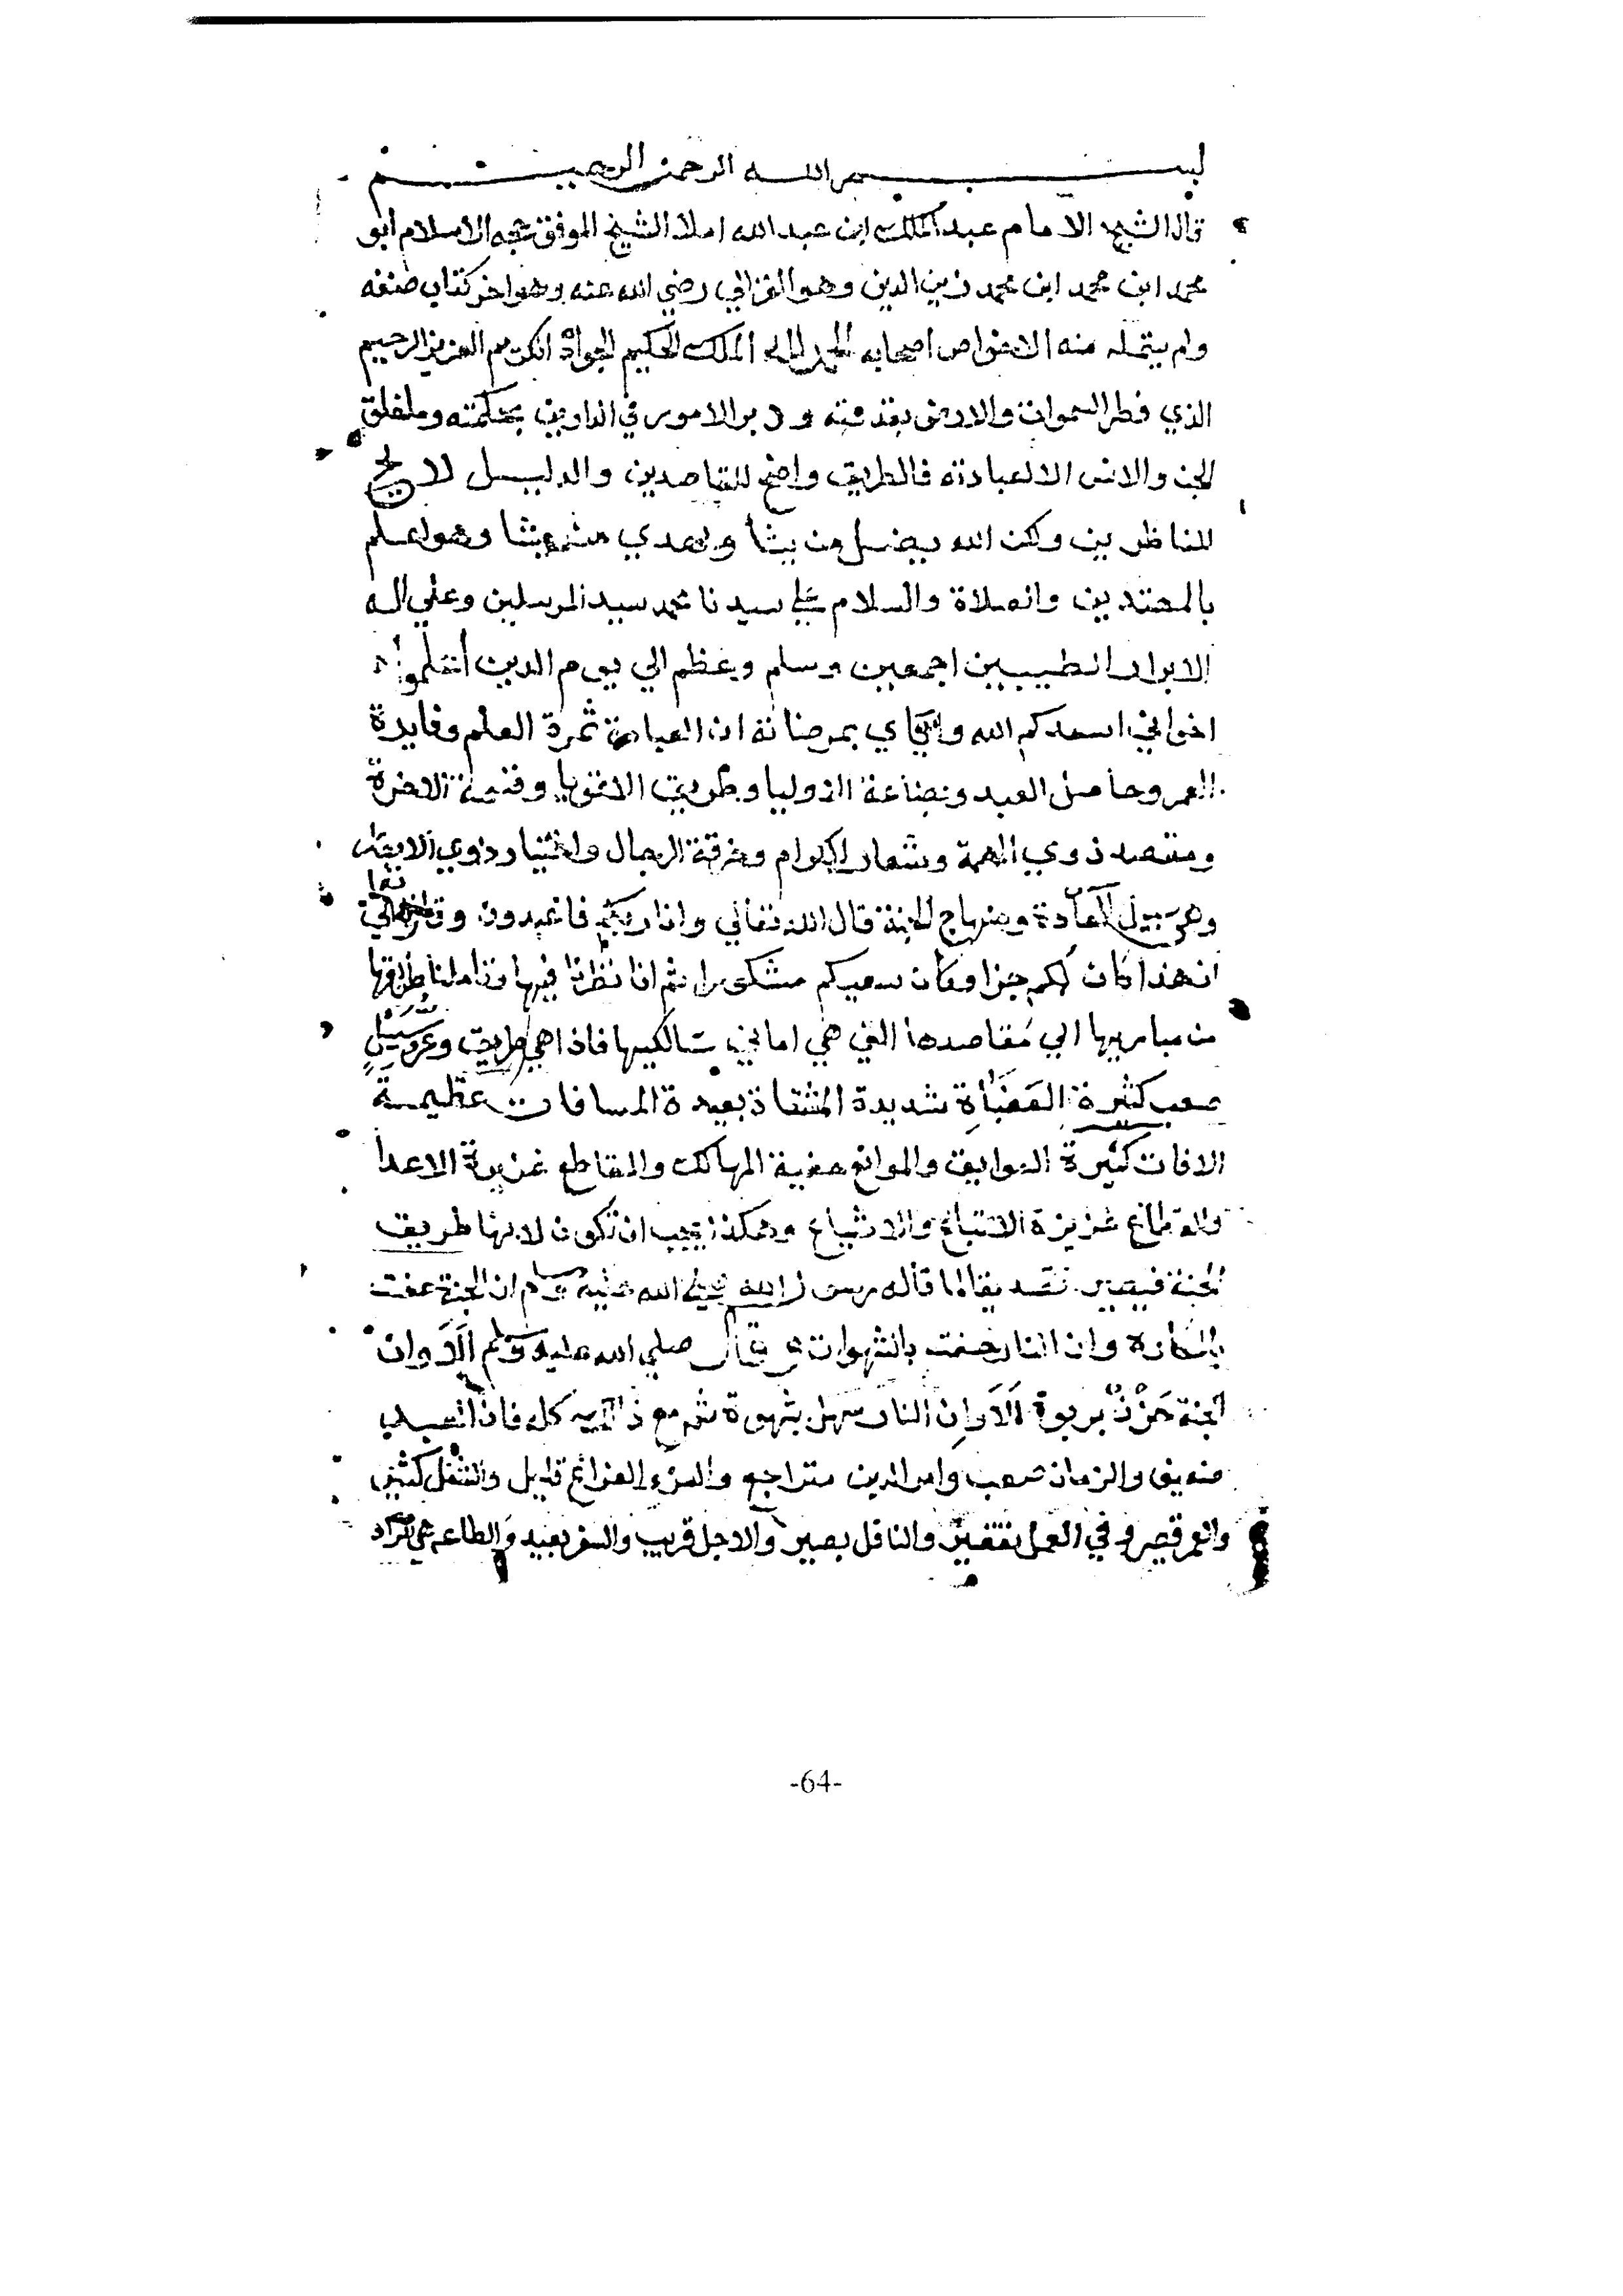 بسم الله الرحمن الرحيم
قال الشيخ الامام عبد الملك ابن عبد الله املا الشيخ الموفق حجه الاسلام أبو
محمد ابن محمد ابن محمد زين الدين وهو الغزالي رضي الله عنه وهو اخر كتاب صنفه
ولم يتمله منه الا خواص اصحابه الحمد لله الملك الحكيم الجواد الكريم العزيز الرحيم
الذي فطر السموات والارض بقدرته ودبر الامور في الدارين بحكمته وما خلق
الجن والانس الا لعبادته فالطريق واضح للقاصدين والدليل لايح
للناظرين ولكن الله يضل من يشأ ويهدي من يشا وهو اعلم
بالمهتدين والصلاة والسلام علي سيدنا محمد سيد المرسلين وعلي اله
الابرار الطيبين اجمعين وسلم وعظم الي يوم الدين أعلموا
اخواني اسعدكم الله واياي بمرضاته ان العبادة ثمرة العلم وفايدة
العمر وحاصل العبد وبضاعة الاوليا وطريق الاتقيا وقسمة الاخرة
ومقصد ذوي الهمة وشعار الكرام وحرقة الرجال واختيار ذوي الابصار
وهي سبيل السعادة ومنهاج الجنة قال الله تعالي وانا ربكم فاعبدون وقال تعالي
ان هذا كان لكم جزا وكان سعيكم مشكورا ثم انا نظرنا فيها وتاملنا طريقها
من مباديها الي مقاصدها التي هي اماني سالكيها فاذا هي طريق وعر وسبيل
صعب كثيرة العقبات شديدة المشقاة بعيدة المسافات عظيمة
الافات كثيرة العوايق والموانع خفية المهالك والمقاطع غزيرة الاعدا
والقطاع عزيزة الاتباع والاشياع وهكذا يجب ان تكون لانها طريق
الجنة فيصير تصديقا لما قاله رسول الله صلي الله عليه وسلم ان الجنة حفت
بالمكاره وان النار حفت بالشهوات وقال صلي الله عليه وسلم ألا وان
الجنة حزن بربوة ألا وان النار سهل بشهوة ثم مع ذلك كله فان العبد
ضعيف والزمان صعب وامر الدين متراجع والفراغ قليل والشغل كثير
والعمر قصير وفي العمل تقصير والناقد بصير والاجل قريب والسفر بعيد والطاعه هي الزاد
-64-